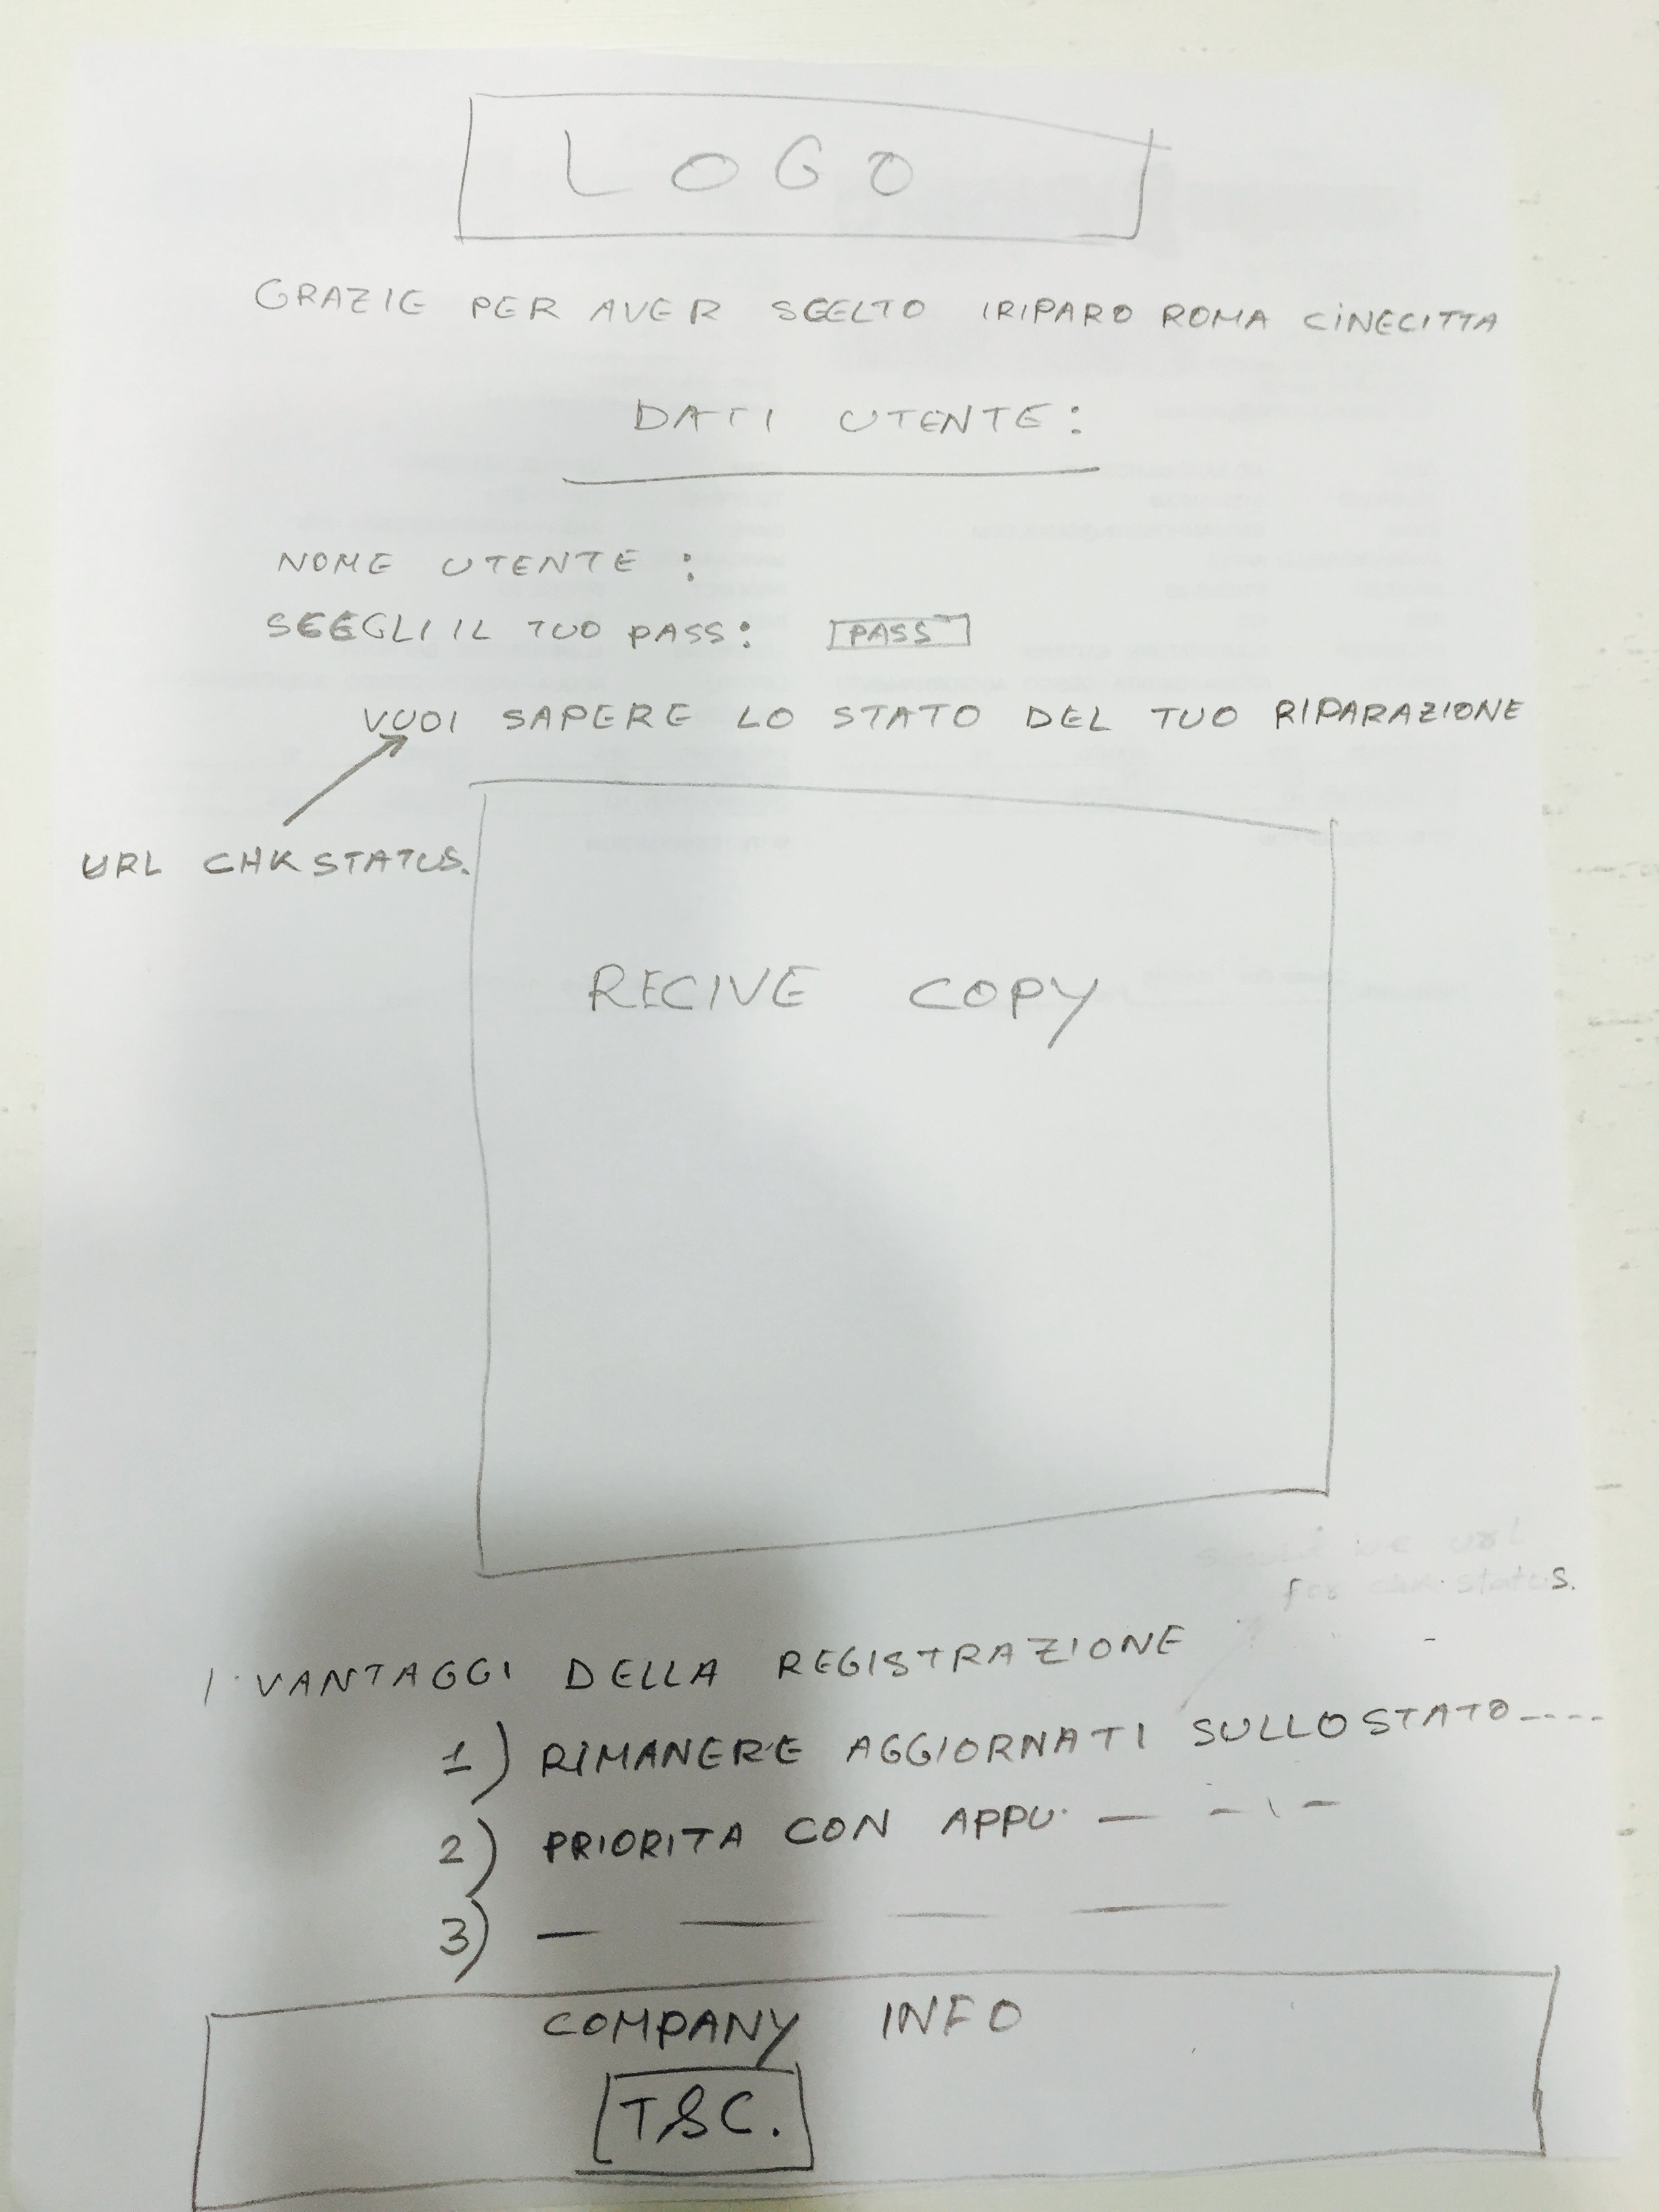 LOGO
GRAZIE PER AVER SCELTO IRIPARO ROMA CINECITTA
DATI UTENTE:
NOME UTENTE :
SCEGLI IL TUO PASS: PASS
VUOI SAPERE LO STATO DEL TUO RIPARAZIONE
URL CHK STATUS.
RECIVE COPY
url
for chk status.
I VANTAGGI DELLA REGISTRAZIONE
1) RIMANERE AGGIORNATI SULLO STATO ----
2) PRIORITA CON APPU. — - - -
3) — — — —
COMPANY INFO
T&C.